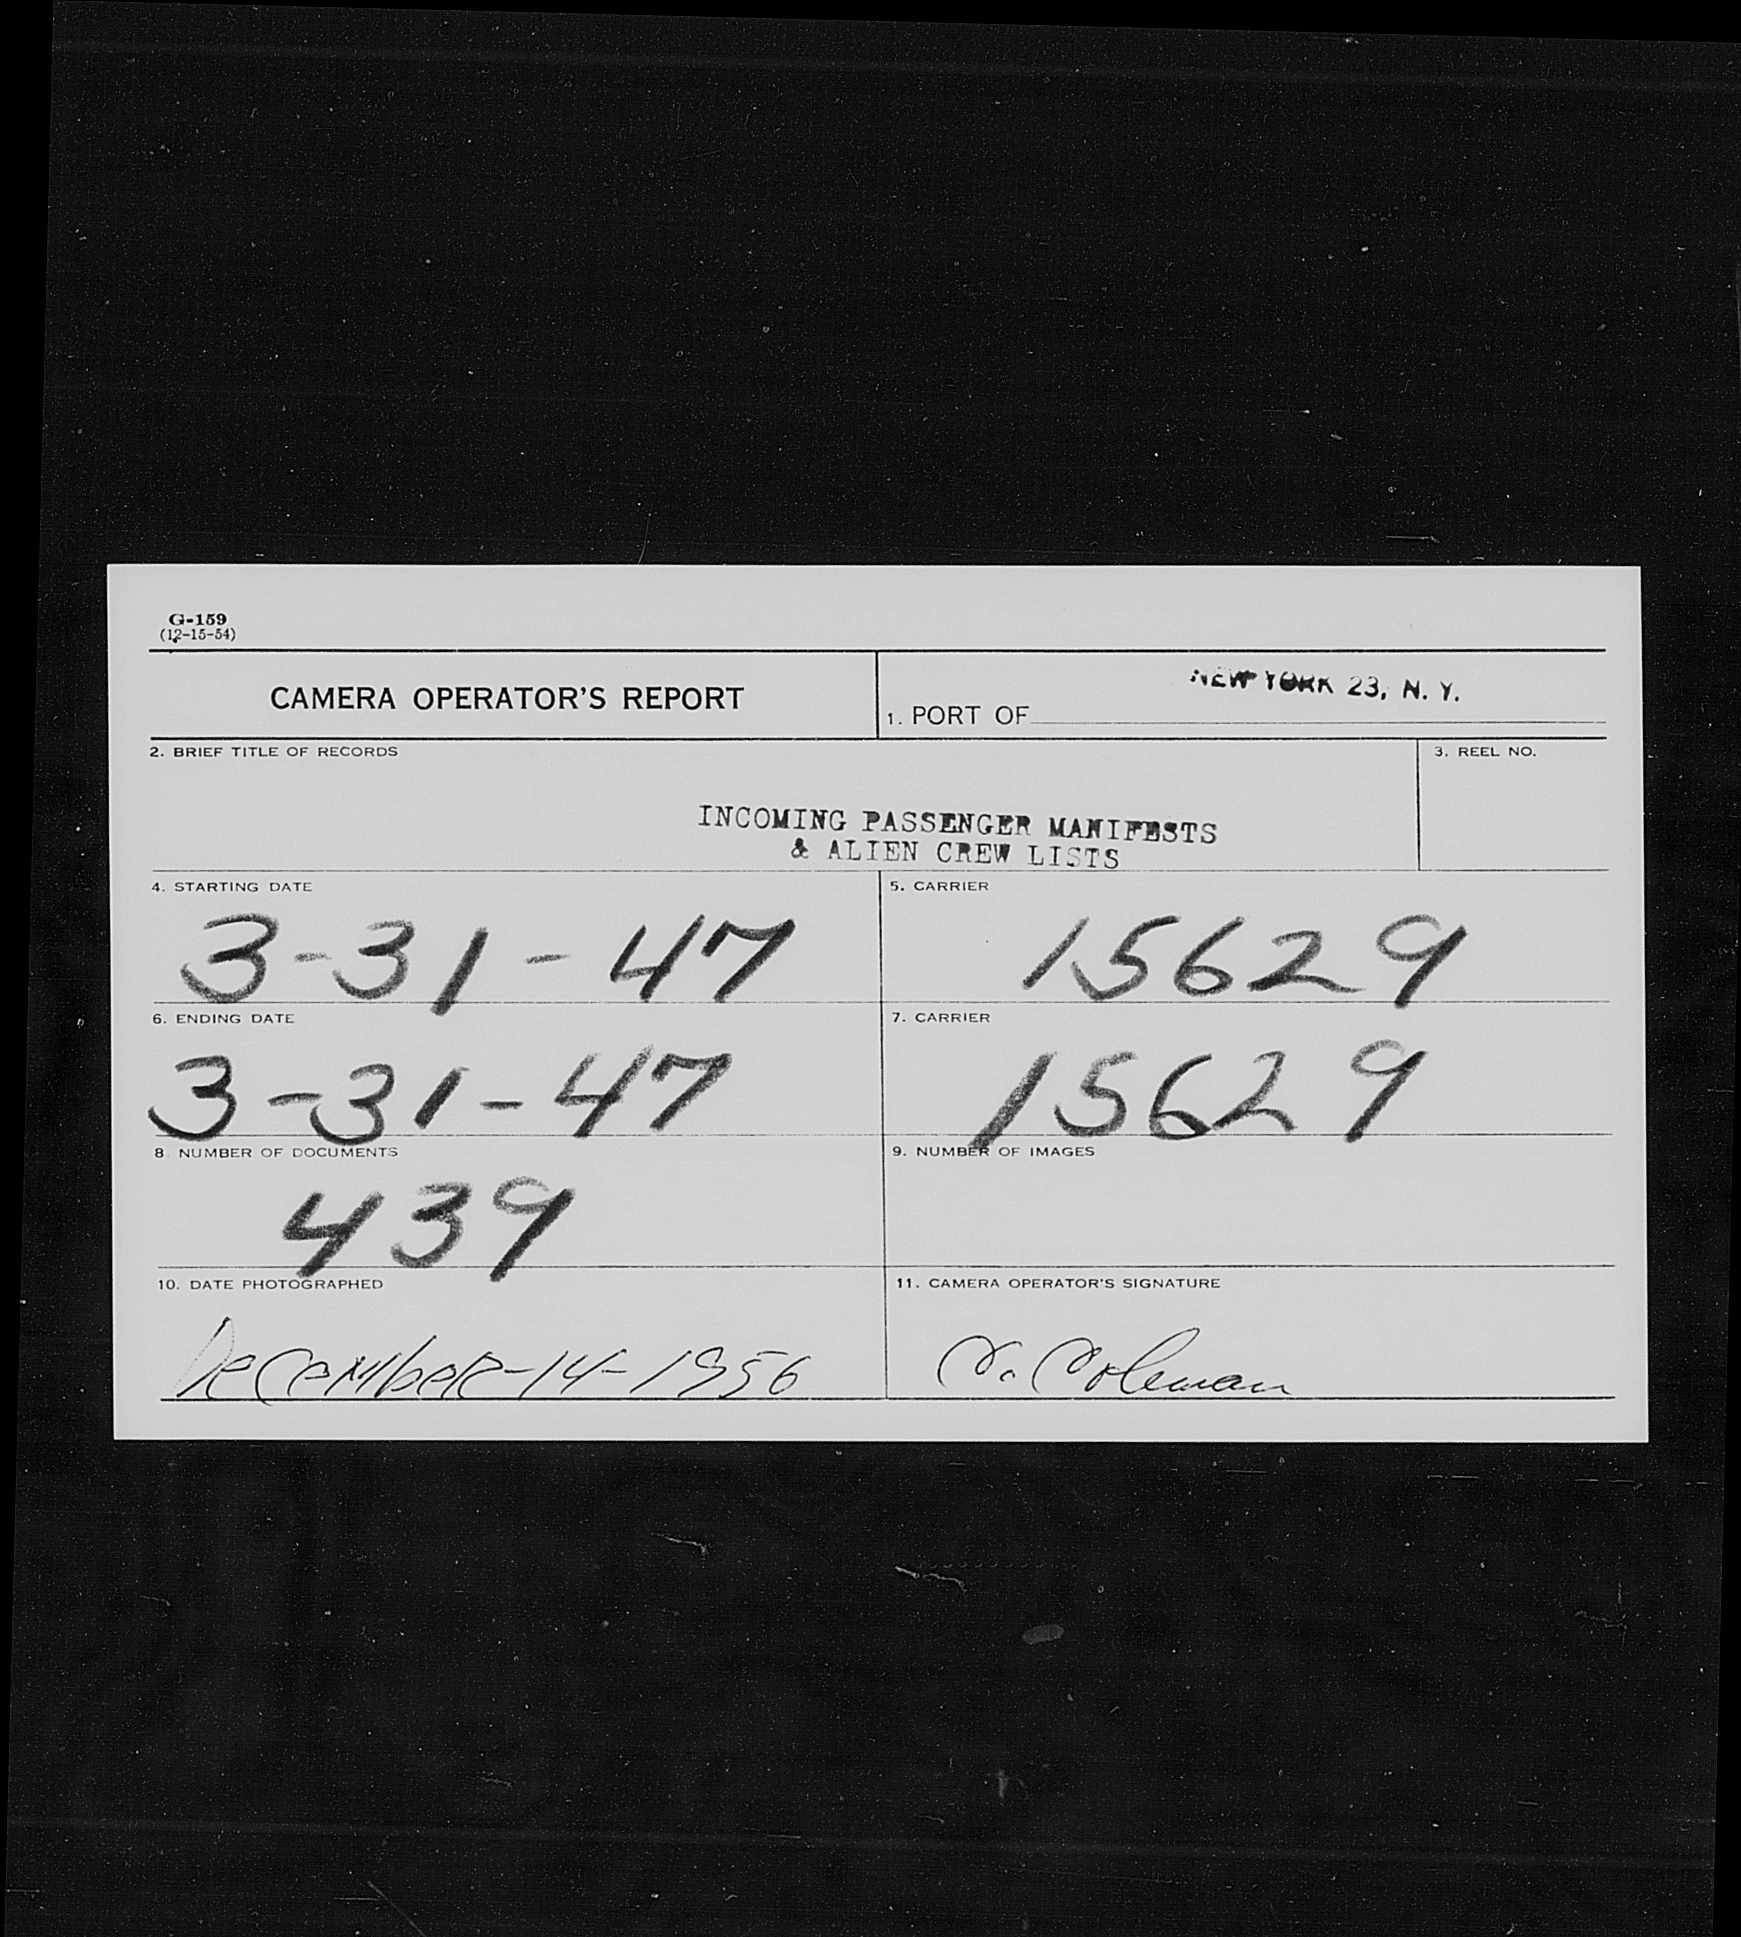 G-159
(12-15-54)
CAMERA OPERATOR'S REPORT
1. PORT OF NEW YORK 23, N. Y.
2. BRIEF TITLE OF RECORDS
3. REEL NO.
INCOMING PASSENGER MANIFESTS
& ALIEN CREW LISTS
4. STARTING DATE
3-31-47
5. CARRIER
15629
6. ENDING DATE
3-31-47
7. CARRIER
15629
8. NUMBER OF DOCUMENTS
439
9. NUMBER OF IMAGES
10. DATE PHOTOGRAPHED
December-14-1956
11. CAMERA OPERATOR'S SIGNATURE
Coleman